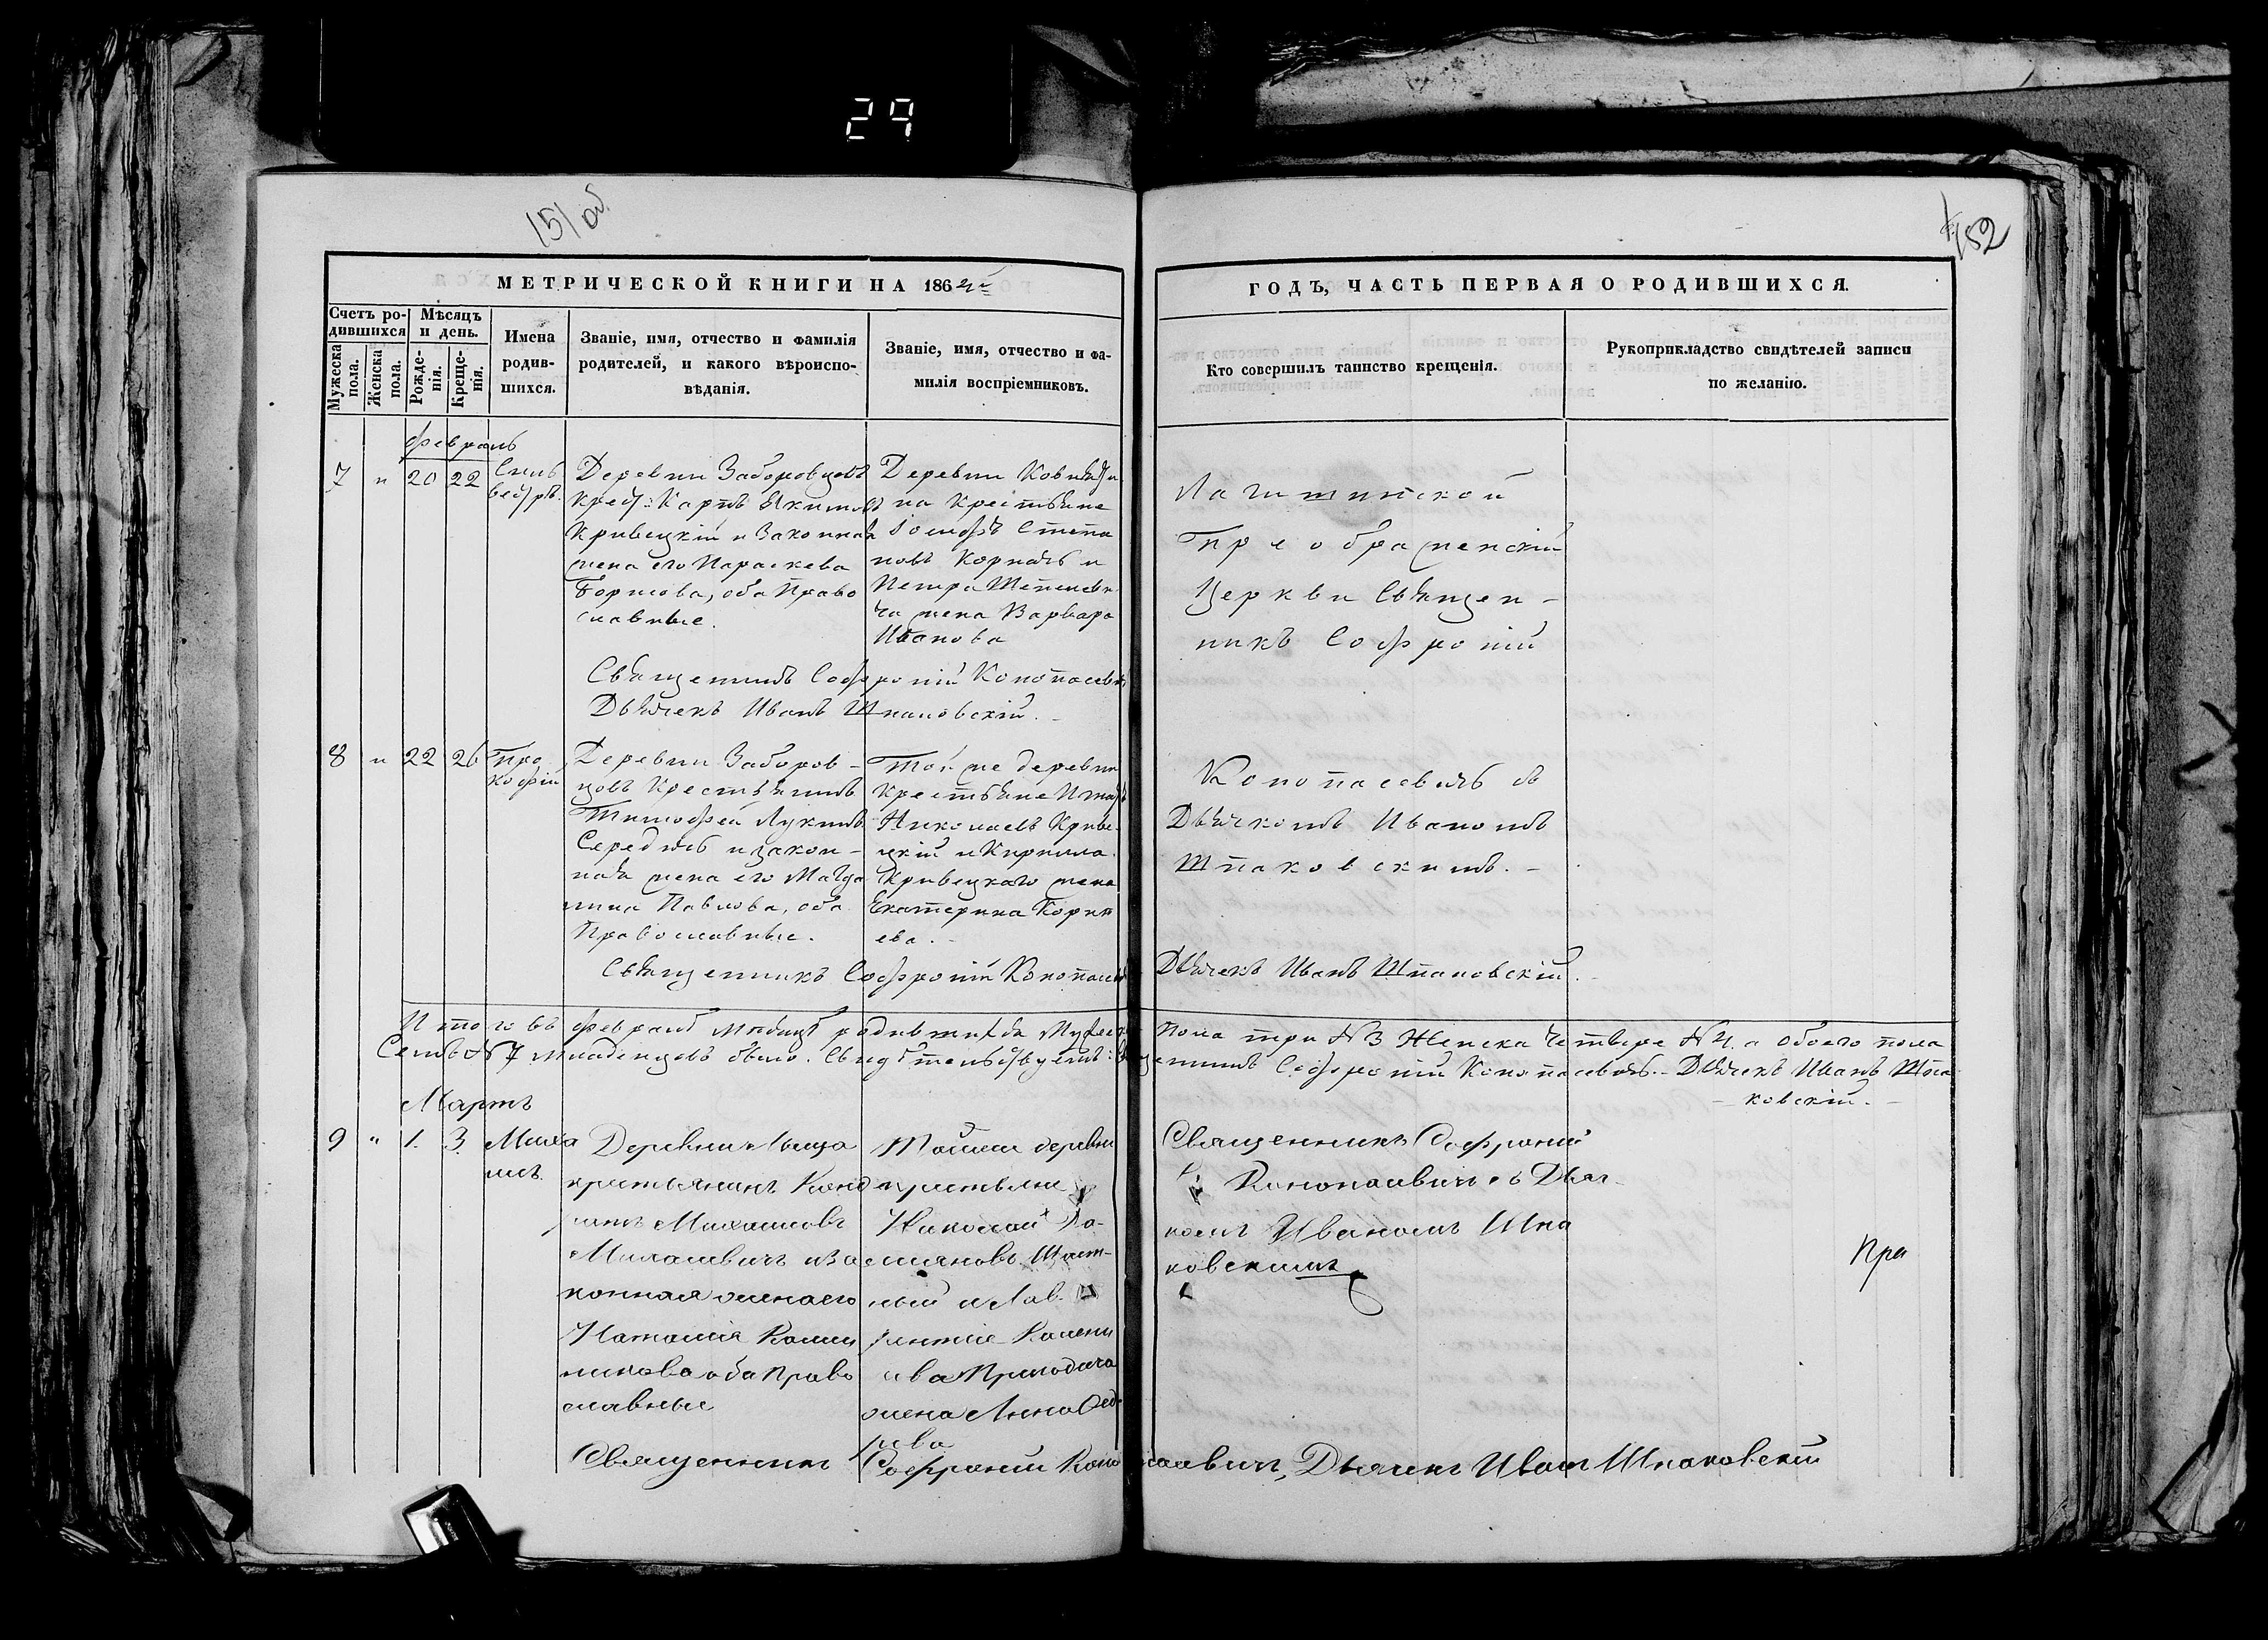 29
151 об.
152
МЕТРИЧЕСКОЙ КНИГИ НА 186
ГОДЪ, ЧАСТЬ ПЕРВАЯ О РОДИВШИХСЯ.
Счетъ ро-
дившихся
Мужеска
пола.
Женска
пола.
Мѣсяцъ
и день.
Рожде-
нія.
Креще-
нія.
Имена
родив-
шихся.
Званіе, имя, отчество и фамилія
родителей, и какого вѣроиспо-
вѣданія.
Званіе, имя, отчество и фа-
милія воспріемниковъ.
Кто совершилъ таинство крещенія.
Рукоприкладство свидѣтелей записи
по желанію.
Февраль
7 " 20 22
Силь
вестръ.
Деревни Заборовцовъ
Крест: Карпъ Якимовъ
Кривецкій и Законная
жена его Параскева
Борисова, оба Право
славные.
Деревни
на Крестьяне
Іосифъ Степа
новъ и
Петра
ча жена Варвара
Иванова
Священникъ Софроній Конопасевичъ
Дьячекъ Иванъ Шпаковскій.
Преображенскій
Церкви Священ-
никъ Софроній
8 " 22 26
Про
кофій
Деревни Заборов-
цовъ Крестьянинъ
Тимофей Лукинъ
Середичъ и закон-
ная жена его Магда
лина Павлова, оба
Православные.
Той же деревни
Крестьяне Игнатъ
Николаевъ Криве-
цкій и Кирилла
Кривецкаго жена
Екатерина Корни
ева.
Конопасевичъ съ
Дьячкомъ Иваномъ
Шпаковскимъ.-
Священникъ Софроній Конопасевичъ Дьячекъ Иванъ Шпаковскій.
Итого въ Февралѣ Мѣсяцѣ родившихся Мужеска пола три № 3 Женска четверо № 4. а обоего пола
Семь № 7 младенцовъ было. Свидѣтельствуемъ: Священникъ Софроній Конопасевичъ.- Дьячекъ Иванъ Шпа-
ковскій.-
Мартъ
9 " 1. 3.
Миха
илъ.
Деревни
крестьянинъ Конд
ратъ Михаиловъ
и За
конная жена его
Наталія
оба Право
славные
Той же деревни
крестьяне
Николай
и Лав
рентіе
жена Анна Ѳедо
рова
Священникъ Софроній
Конопасевичъ съ Дьяч-
комъ Иваномъ Шпа
ковскимъ
Пра
Священникъ Софроній Конопасевичъ, Дьячекъ Иванъ Шпаковскій